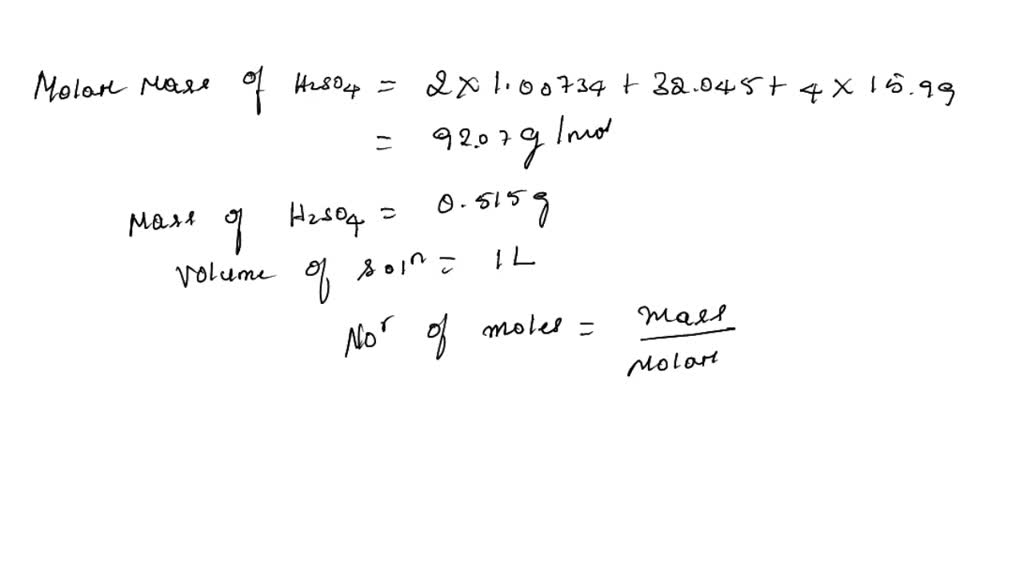 Molar Mass of H2SO4 = 2 × 1.00734 + 32.045 + 4 × 15.99
= 92.07 g/mol
Mass of H2SO4 = 0.515 g
Volume of solⁿ = 1 L
Noʳ of moles = Mass
Molar